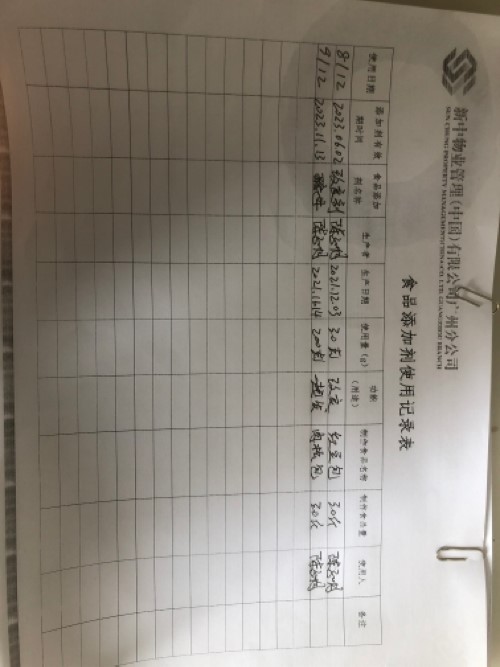 新中物业管理(中国)有限公司广州分公司
SUN CHUNG PROPERTY MANAGEMENT (CHINA) CO. LTD. GUANGZHOU BRANCH
食品添加剂使用记录表
使用日期 添加剂有效期时间 食品添加剂名称 生产者 生产日期 使用量(g) 功能(用途) 制作食品名称 制作食品量 使用人 备注
8/12 2023.06.02 2021.12.03 30克 红豆包 30个
9/12 2023.11.13 200克 肉松包 30个